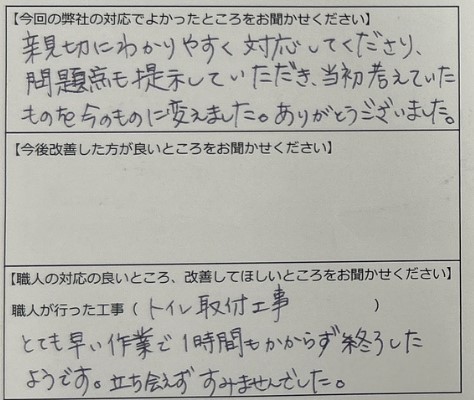 【今回の弊社の対応でよかったところをお聞かせください】
親切にわかりやすく対応してくださり、
問題点も提示していただき、当初考えていた
ものを今のものに変えました。ありがとうございました。
【今後改善した方が良いところをお聞かせください】
【職人の対応の良いところ、改善してほしいところをお聞かせください】
職人が行った工事（トイレ取付工事）
とても早い作業で1時間もかからず終了した
ようです。立ち会えずすみませんでした。